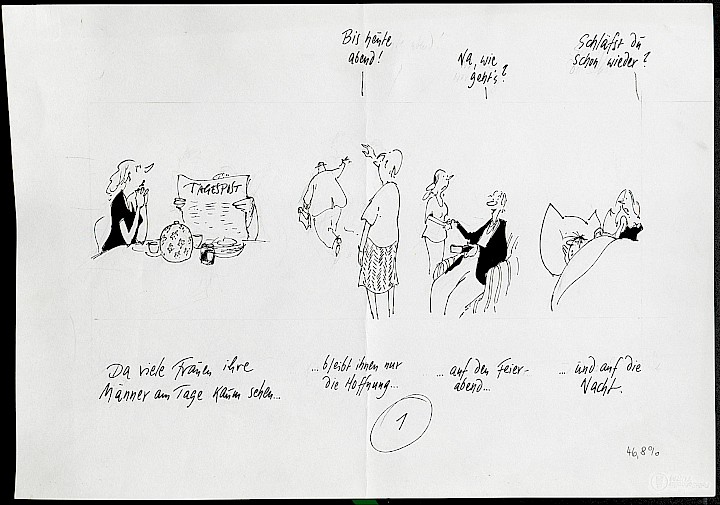 Bis heute
abend!
Na, wie
geht's?
Schläfst du
schon wieder?
TAGESPOST
Da viele Frauen ihre
Männer am Tage kaum sehen...
...bleibt ihnen nur
die Hoffnung...
...auf den Feier-
abend...
...und auf die
Nacht.
1
46,8%